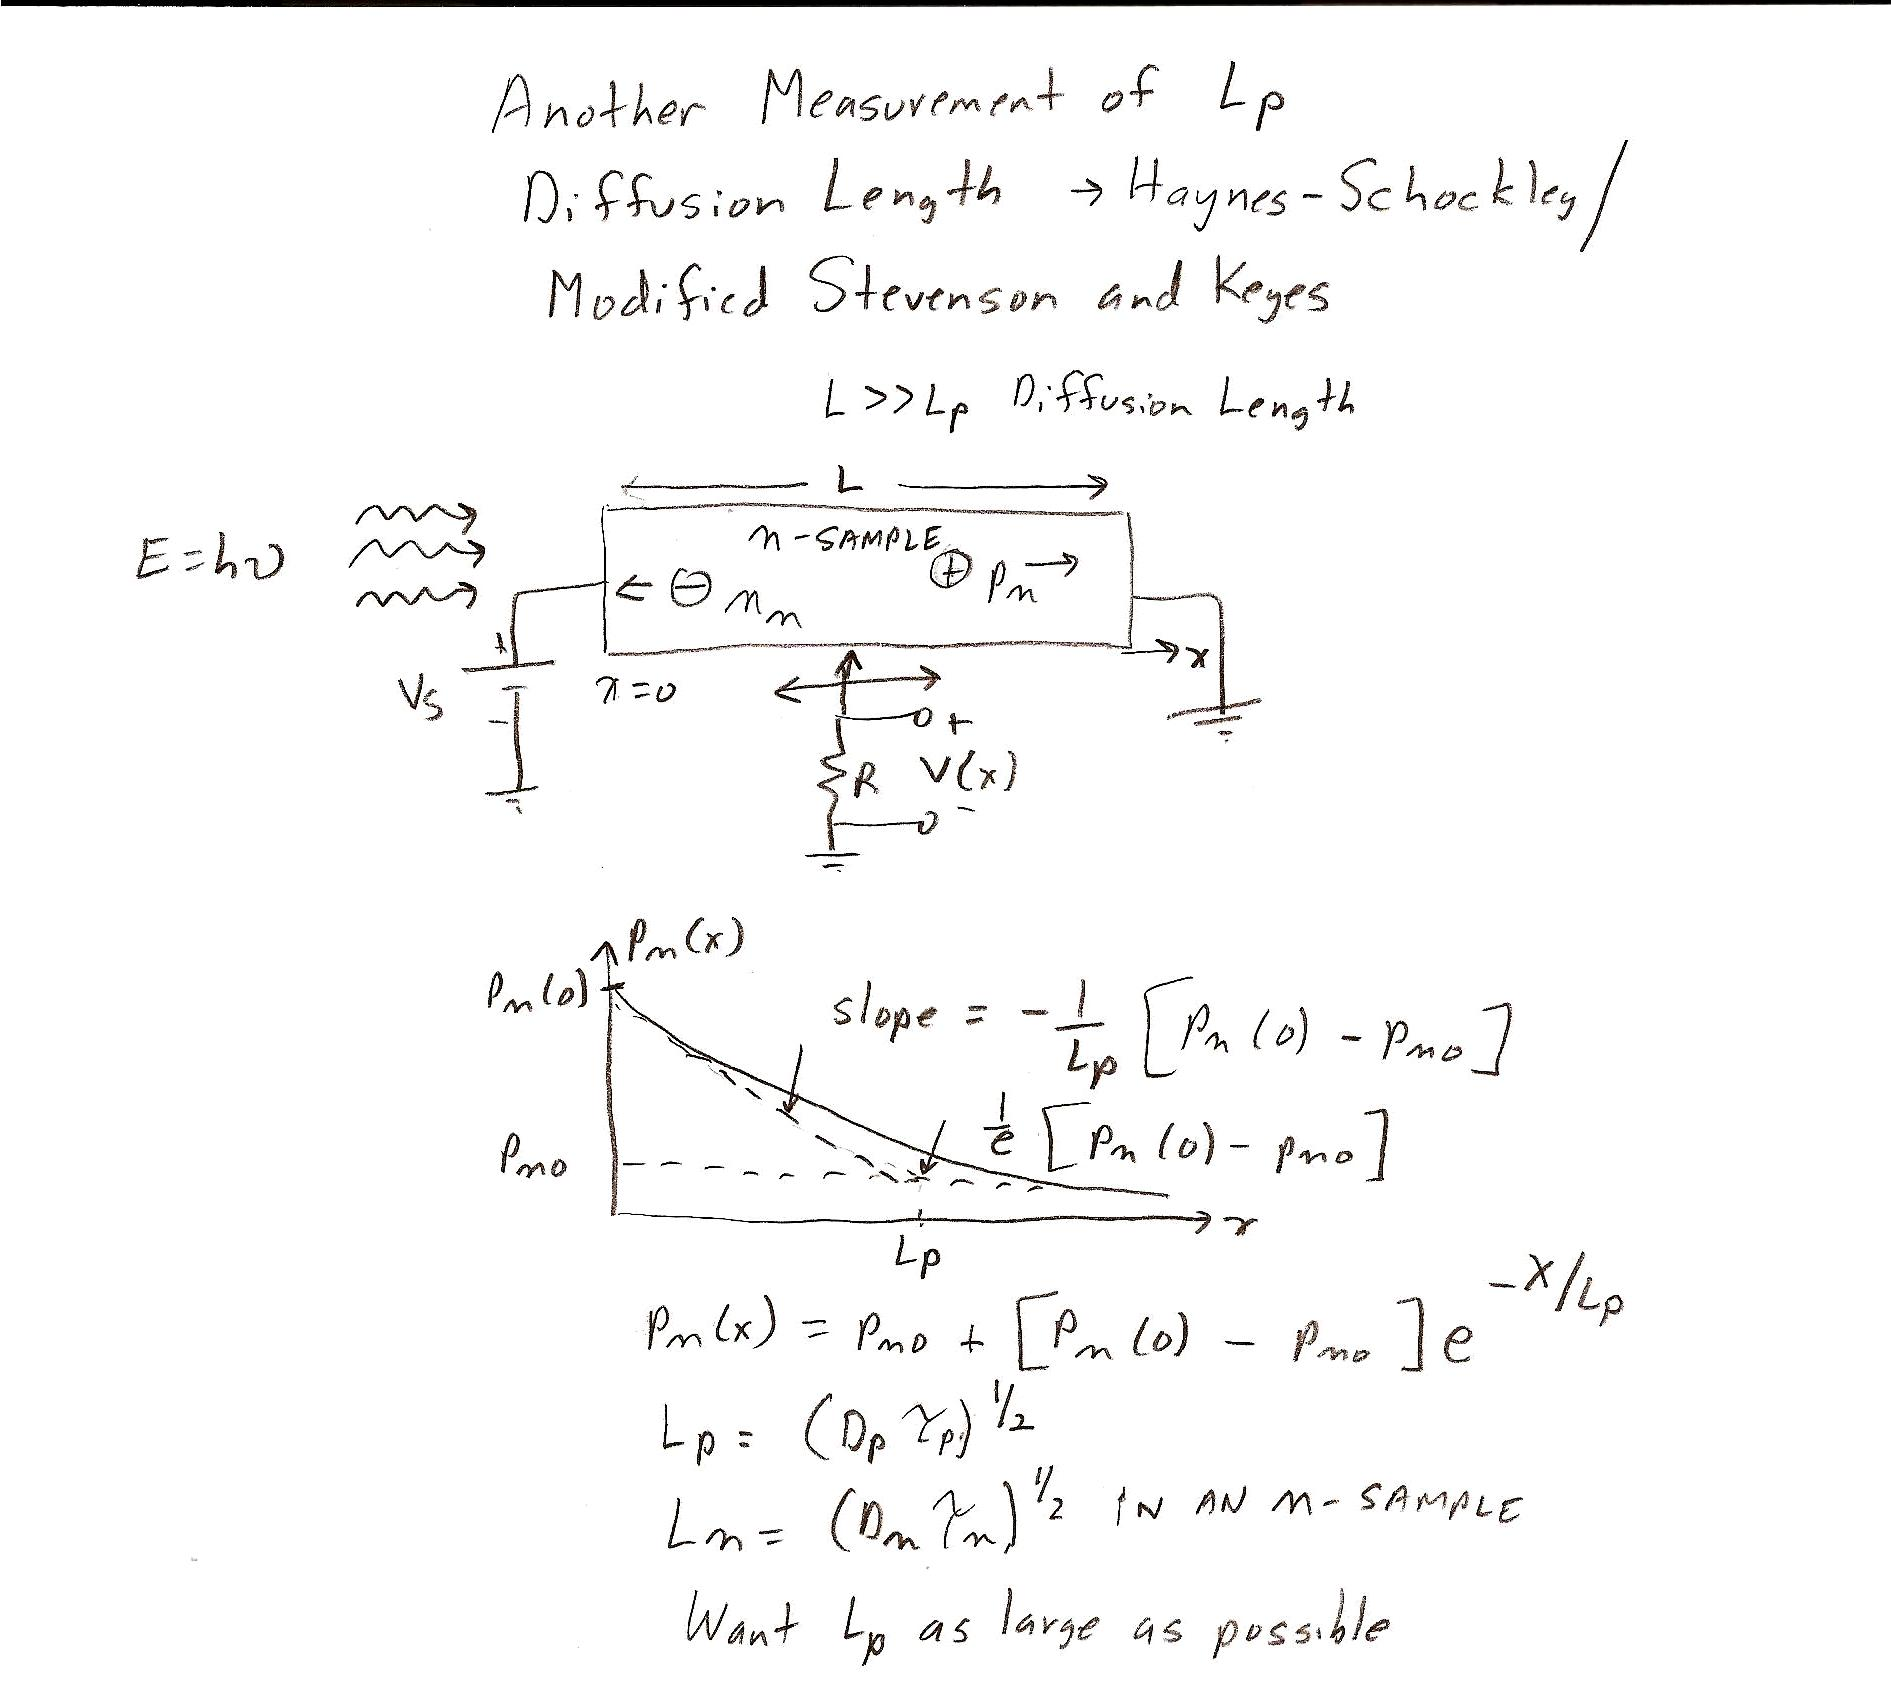 Another Measurement of Lp
Diffusion Length → Haynes-Schockley/
Modified Stevenson and Keyes
L >> Lp Diffusion Length
L
E = hυ
n-SAMPLE
← ⊖ nn
⊕ pn →
+
Vs
-
x=0
→ x
+
R V(x)
-
Pn(x)
Pn(0)
slope = - 1/Lp [Pn(0) - Pno]
1/e [Pn(0) - Pno]
Pno
x
Lp
Pn(x) = Pno + [Pn(0) - Pno] e -x/Lp
Lp = (Dp τp) 1/2
Ln = (Dn τn) 1/2 IN AN n-SAMPLE
Want Lp as large as possible